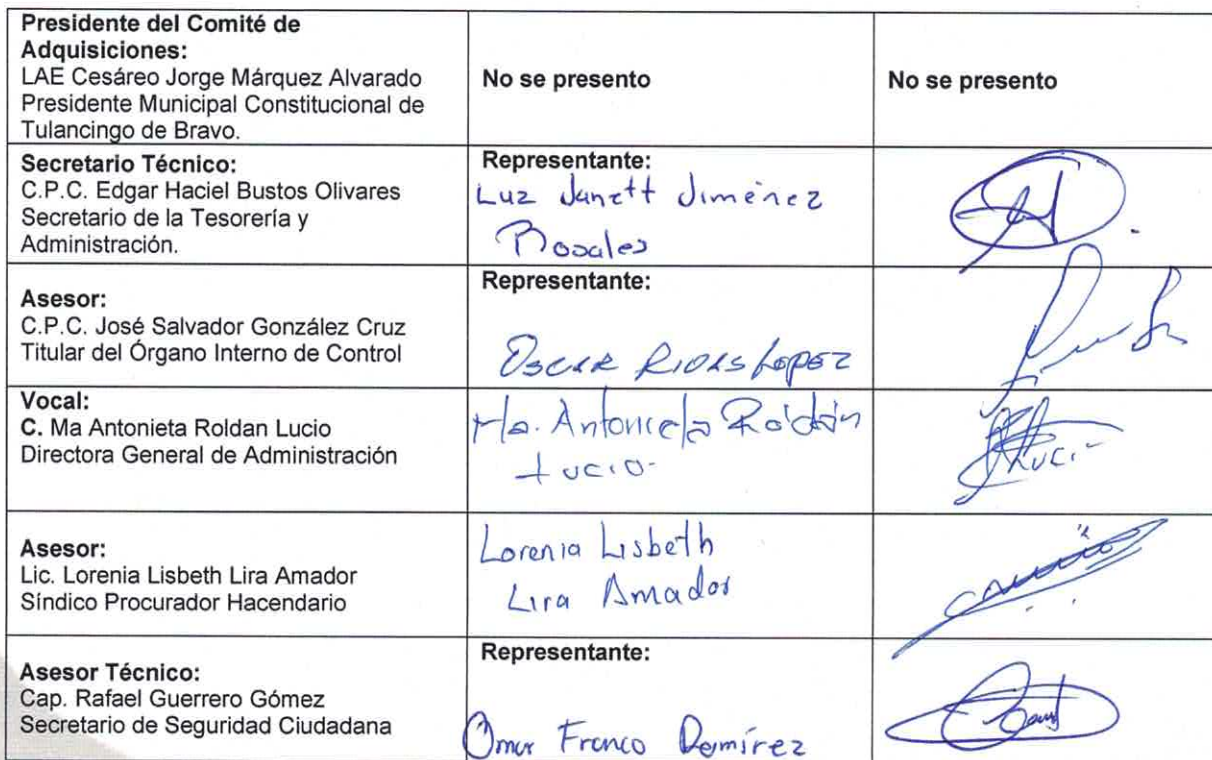 Presidente del Comité de
Adquisiciones:
LAE Cesáreo Jorge Márquez Alvarado
Presidente Municipal Constitucional de
Tulancingo de Bravo.
No se presento
No se presento
Secretario Técnico:
C.P.C. Edgar Haciel Bustos Olivares
Secretario de la Tesorería y
Administración.
Representante:
Luz Janett Jiménez
Rosales
Asesor:
C.P.C. José Salvador González Cruz
Titular del Órgano Interno de Control
Representante:
Oscar Rioas Lopez
Vocal:
C. Ma Antonieta Roldan Lucio
Directora General de Administración
Ma. Antonieta Roldán
Lucio.
Asesor:
Lic. Lorenia Lisbeth Lira Amador
Síndico Procurador Hacendario
Lorenia Lisbeth
Lira Amador
Asesor Técnico:
Cap. Rafael Guerrero Gómez
Secretario de Seguridad Ciudadana
Representante:
Omar Franco Ramírez